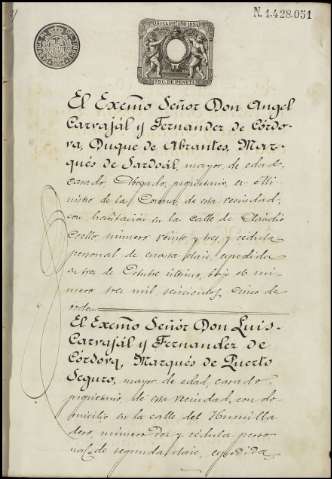 N. 1.428.051
El Excmo Señor Don Angel
Carvajál y Fernandez de Córdo-
va, Duque de Abrantes, Mar-
qués de Sardoál, mayor de edad,
casado, Abogado, propietario, ex Mi-
nistro de la Corona de esta vecindad,
con habitación en la calle de Claudio
Coello número veinte y tres, y cédula
personal de cuarta clase, expedida
en tres de Octubre último, bajo el nú-
mero tres mil seiscientos cinco de
orden
El Excmo Señor Don Luis
Carvajál y Fernandez de
Córdova, Marqués de Puerto
Seguro, mayor de edad, casado,
propietario de esta vecindad, con do-
micilio en la calle del Humilla
dero, número dos y cédula perso
nal de segunda clase, expedida